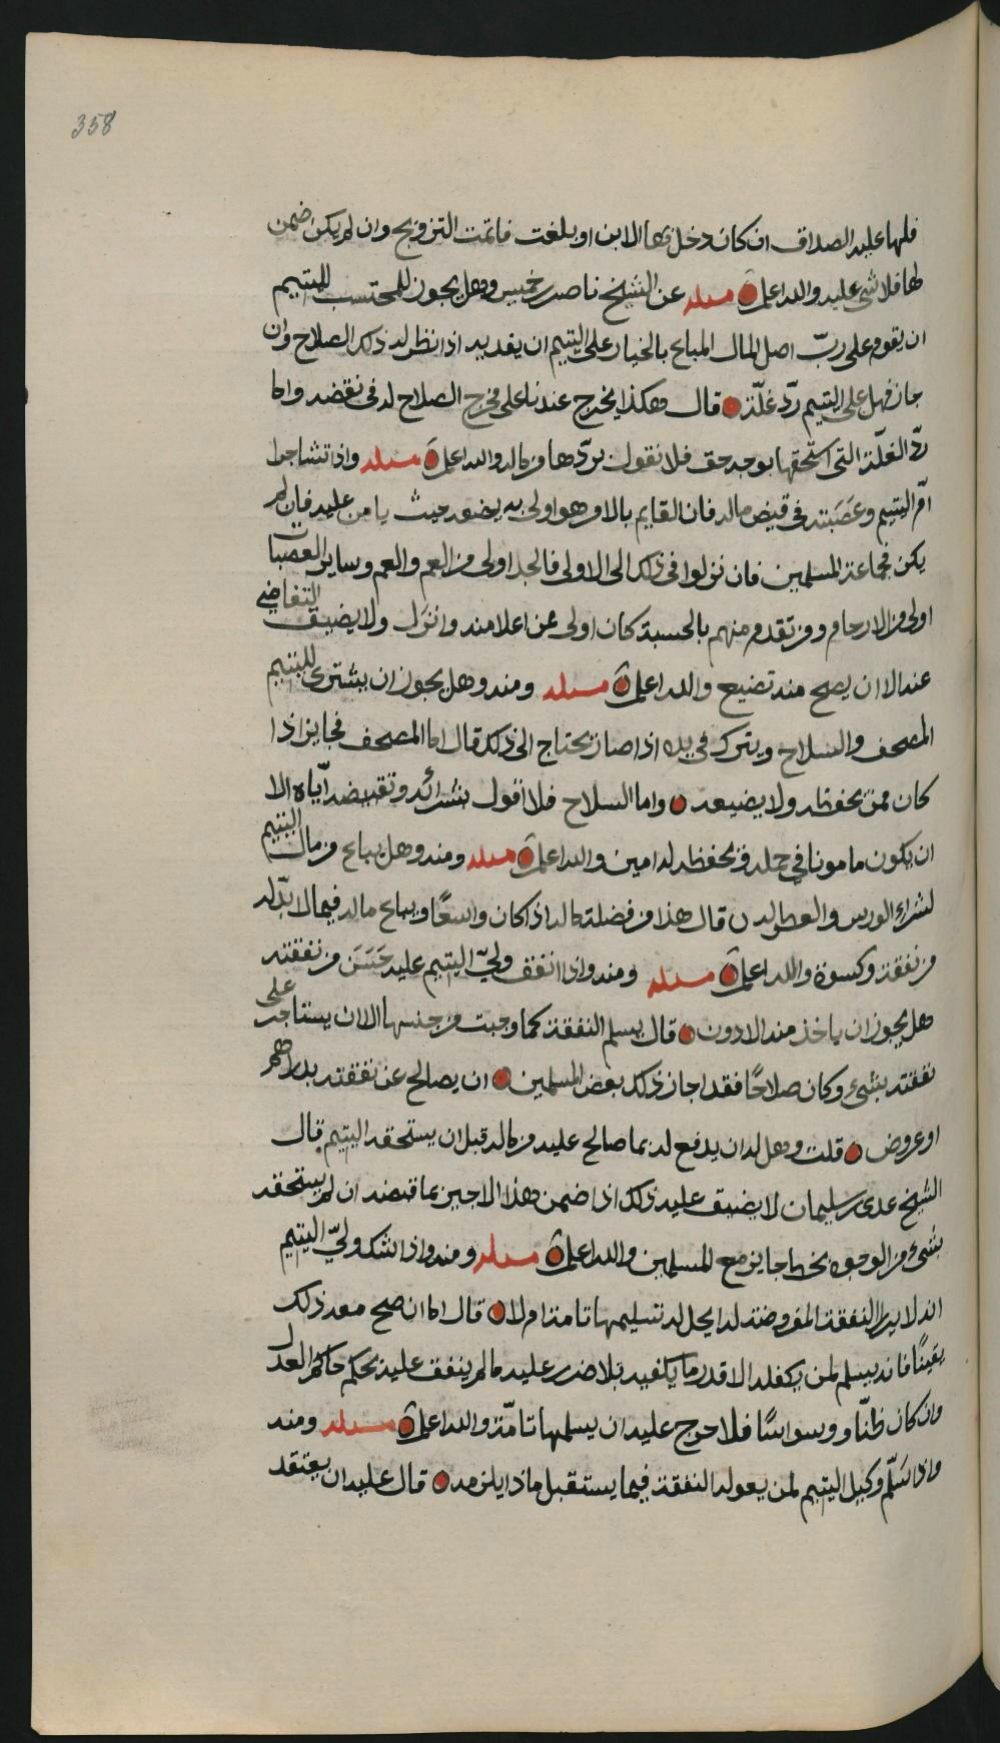 358
فلها عليه الصداق ان كان دخل بها الابن او بلغت فاتمت التزويج وان لم يكن ضمن
لها فلا شي عليه والله اعلم مسله عن الشيخ ناصر بن خميس وهل يجوز للمحتسب لليتيم
ان يقوم على ربّ اصل المال المباع بالخيار على اليتيم ان يفديه اذا نظر له ذلك الصلاح وان
جاز فهل على اليتيم ردّ غلّة قال هكذا يخرج عندنا على مخرج الصلاح له في نقضه واما
ردّ الغلّة التي استحقها بوجه حق فلا نقول بردّها من ماله والله اعلم مسله واذا تشاجرا
امّ اليتيم وعَصَبَته في قبض ماله فان القايم بالامر هو اولى به يضعه حيث يامن عليه فان لم
يكن فجماعة المسلمين فان نزلوا في ذلك الى الاولى فالجد اولى من العم والعم وساير العصبات
اولى من الارحام ومن تقدم منهم بالحسبة كان اولى عن اعلا منه وانزل ولا يضيق التغاضي
عنه الا ان يصح منه تضيع والله اعلم مسله ومنه وهل يجوز ان يشترى لليتيم
المصحف والسلاح ويترك في يده اذا صار يحتاج الى ذلك قال اما المصحف فجايز اذا
كان ممن يحفظه ولا يضيعه واما السلاح فلا اقول بشرائه وتقبيضه ايّاه الا
ان يكون مامونا في حمله ومن يحفظه له امين والله اعلم مسله ومنه وهل يباع من مال اليتيم
لشراء الورس والعطر له قال هذا من فضلة ماله اذا كان واسعًا ويباع ماله فيما لا بدّ له
من نفقة وكسوة والله اعلم مسله ومنه واذا انفق وليّ اليتيم عليه من نفقته
هل يجوز ان ياخذ منه الادون قال يسلم النفقة كما وجبت من جنسها الا ان يستاجر على
نفقته بشيء وكان صلاحًا فقد اجاز ذلك بعض المسلمين ان يصالح عن نفقته بدراهم
او عروض قلت وهل له ان يدفع له بما صالح عليه من ماله قبل ان يستحقه اليتيم قال
الشيخ عدي بن سليمان لا يضيق عليه ذلك اذا ضمن هذا الاجير بما قبضه ان لم يستحقه
بشيء من الوجوه بخط جايز مع المسلمين والله اعلم مسله ومنه واذا شك وليّ اليتيم
انه لا يرا النفقة المفروضة له ايحل له تسليمها تامة ام لا قال اما ان صح معه ذلك
يقينًا فانه يسلم لمن يكفله الا قدر ما يكفيه بلا ضرر عليه ما لم ينفق عليه بحكم حاكم العدل
وان كان ظنّا ووسواسًا فلا حرج عليه ان يسلمها تامّة والله اعلم مسله ومنه
واذا سَلّم وكيل اليتيم لمن يعوله النفقة فيما يستقبل ماذا يلزمه قال عليه ان يعتقد